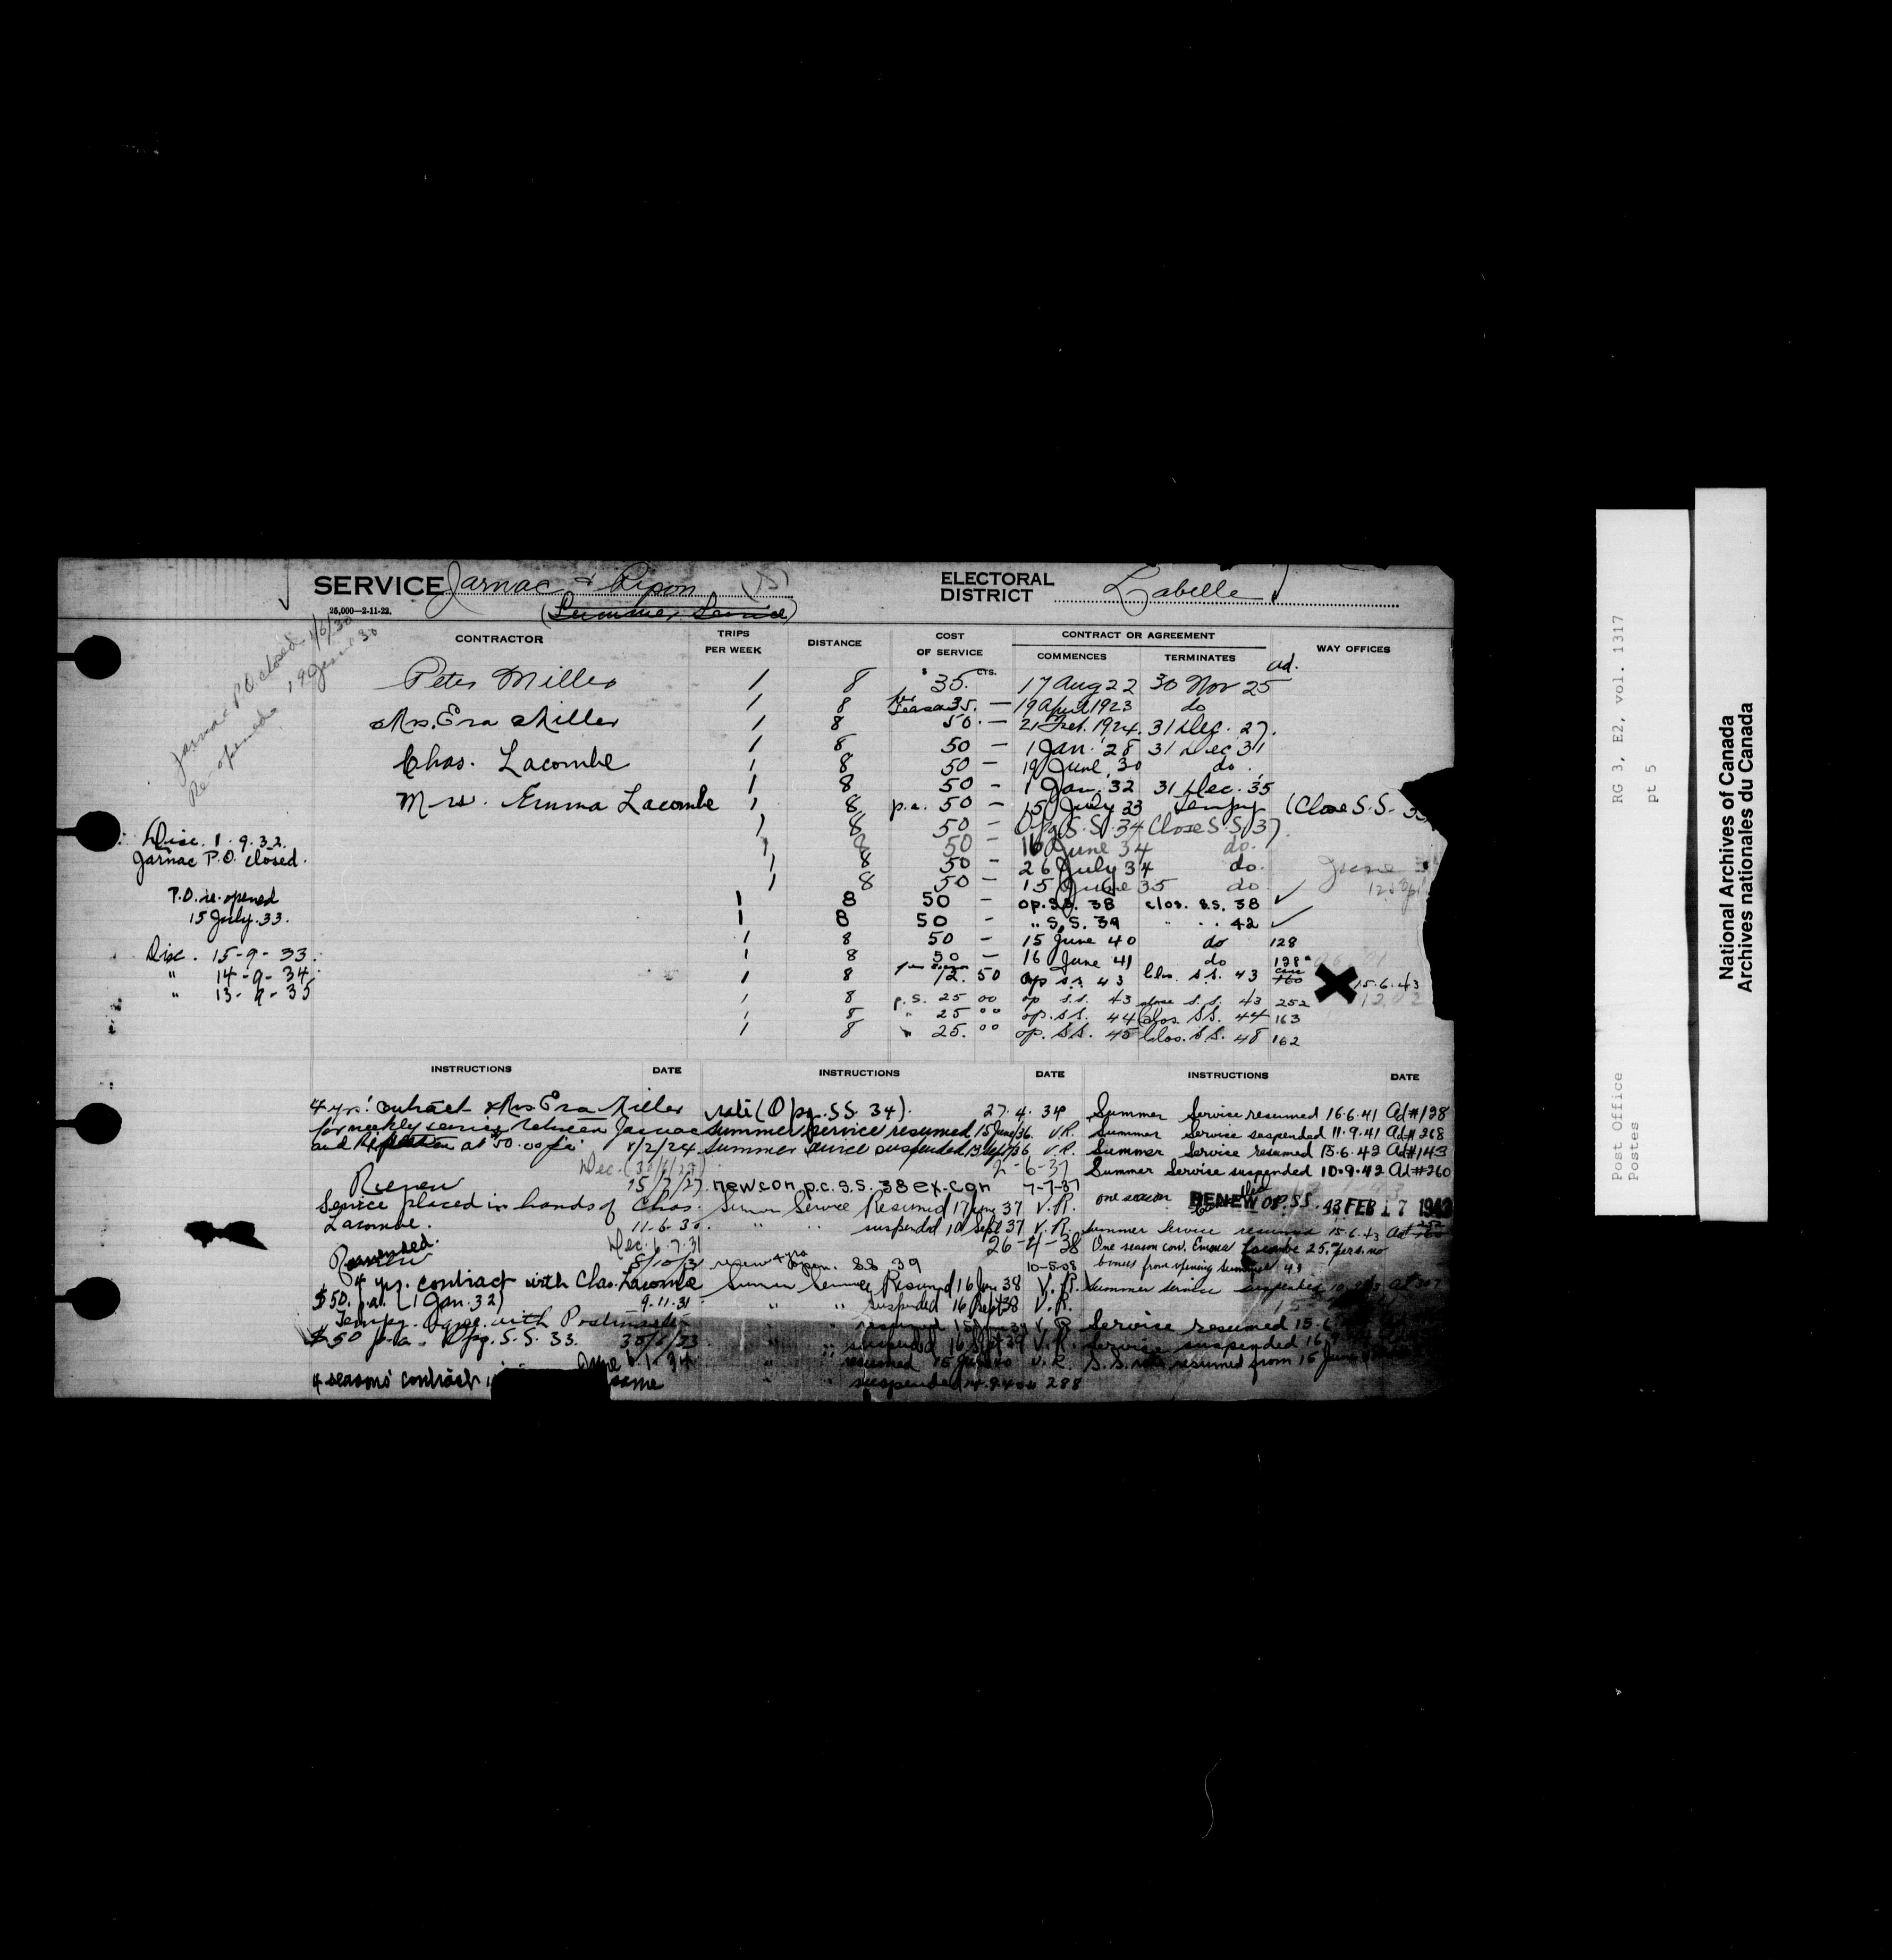 SERVICE Jarnac & Ripon (S)
(Summer Service)
ELECTORAL DISTRICT Labelle
25,000—2-11-22.
CONTRACTOR TRIPS PER WEEK DISTANCE COST OF SERVICE CONTRACT OR AGREEMENT COMMENCES TERMINATES WAY OFFICES
$ CTS. ad.
Peter Miller 1 8 35. 17 Aug 22 30 Nov 25
1 8 35. — 19 April 1923 do
Mrs. Era Miller 1 8 50. — 21 Feb. 1924. 31 Dec. 27.
1 8 50 — 1 Jan. '28 31 Dec 31
Chas. Lacombe 1 8 50 — 19 June 30 do.
1 8 50 — 1 Jan. 32 31 Dec. 35
Mrs. Emma Lacombe 1 8 p.a. 50 — 15 July 33 Tempy (Close S.S. 33
1 8 50 — Opg S.S. 34 Close S.S. 37.
1 8 50 — 16 June 34 do.
1 8 50 — 26 July 34 do. June
1 8 50 — 15 June 35 do
1 8 50 — op. S.S. 38 clos. S.S. 38 ✓
1 8 50 — " S.S. 39 " " 42 ✓
1 8 50 — 15 June 40 do 128
1 8 50 — 16 June 41 do 128
1 8 12. 50 op s.s. 43 Clos. s.s. 43 160 15.6.43
1 8 p.s. 25 00 op s.s. 43 close s.s. 43 252
1 8 " 25 00 op. S.S. 44 Clos. S.S. 44 163
1 8 " 25. 00 op. S.S. 45 Clos. S.S. 48 162
Jarnac P.O. closed 1/6/30
Re-opened 19 June 30
Disc. 1.9.32.
Jarnac P.O. closed.
P.O. re-opened
15 July. 33.
Disc. 15-9-33.
" 14-9-34.
" 13-9-35
INSTRUCTIONS DATE INSTRUCTIONS DATE INSTRUCTIONS DATE
4 yrs' contract Mrs Era Miller
for weekly service between Jarnac
and Ripon at 50.00 8/2/24
Dec.
Renew 15/7/27.
Service placed in hands of Chas.
Lacombe. 11-6-30.
Dec. 6.7.31
Renew 8/10/31
4 yr. contract with Chas. Lacombe
$50. p.a. (1 Jan. 32) 9.11.31
Tempy. Agree. with Postmaster
$50 p.a. Opg. S.S. 33. 30/6/33
4 seasons' contract same
(Opg. S.S. 34). 27.4.34
Summer service resumed 15 June/36. V.R.
Summer service suspended 13 Sept/36 V.R.
2-6-37
new con p.c. S.S. 38 ex-con 7-7-37
Summer Service Resumed 17 June 37 V.R.
" " suspended 10 Sept 37 V.R.
26-4-38
renew 4 yrs open. SS 39 10-5-38
Summer Service Resumed 16 June 38 V.R.
" " suspended 16 Sept 38 V.R.
" resumed 15 June 39 V.R.
" suspended 16 Sept 39 V.R.
" resumed 15 June 40 V.R.
" suspended 14.9.40 288
Summer Service resumed 16.6.41 Ad#128
Summer Service suspended 11.9.41 Ad#268
Summer Service resumed 15.6.42 Ad#143
Summer Service suspended 10.9.42 Ad#260
one season RENEW OP. SS. 43 FEB 17 1943
Summer Service resumed 15.6.43 Ad 252
One season con. Emma Lacombe 25.00 pers. no
bonus from opening summer 43
Summer service suspended
Service resumed 15.6
Service suspended 16
S.S. resumed from 15 June
RG 3, E2, vol. 1317
pt 5
Post Office
Postes
National Archives of Canada
Archives nationales du Canada